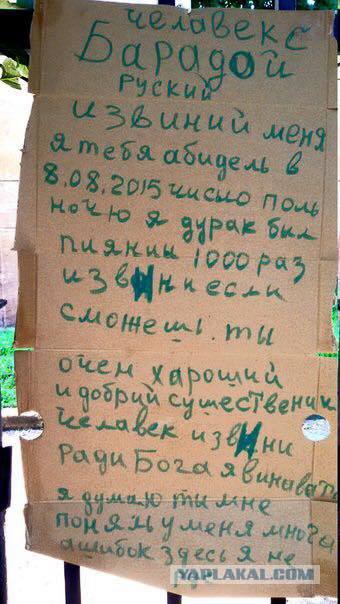 Челавек с
Барадой
Руский
извиний меня
я тебя абидель в
8.08.2015 число поль
ночю я дурак был
пияний 1000 раз
извини если
сможеш. ты
очен хароший
и добрий существений
челавек извини
ради Бога я виноват
я думаю ти мне
понял у меня многа
ашибок здесь я не
YAPLAKAL.COM